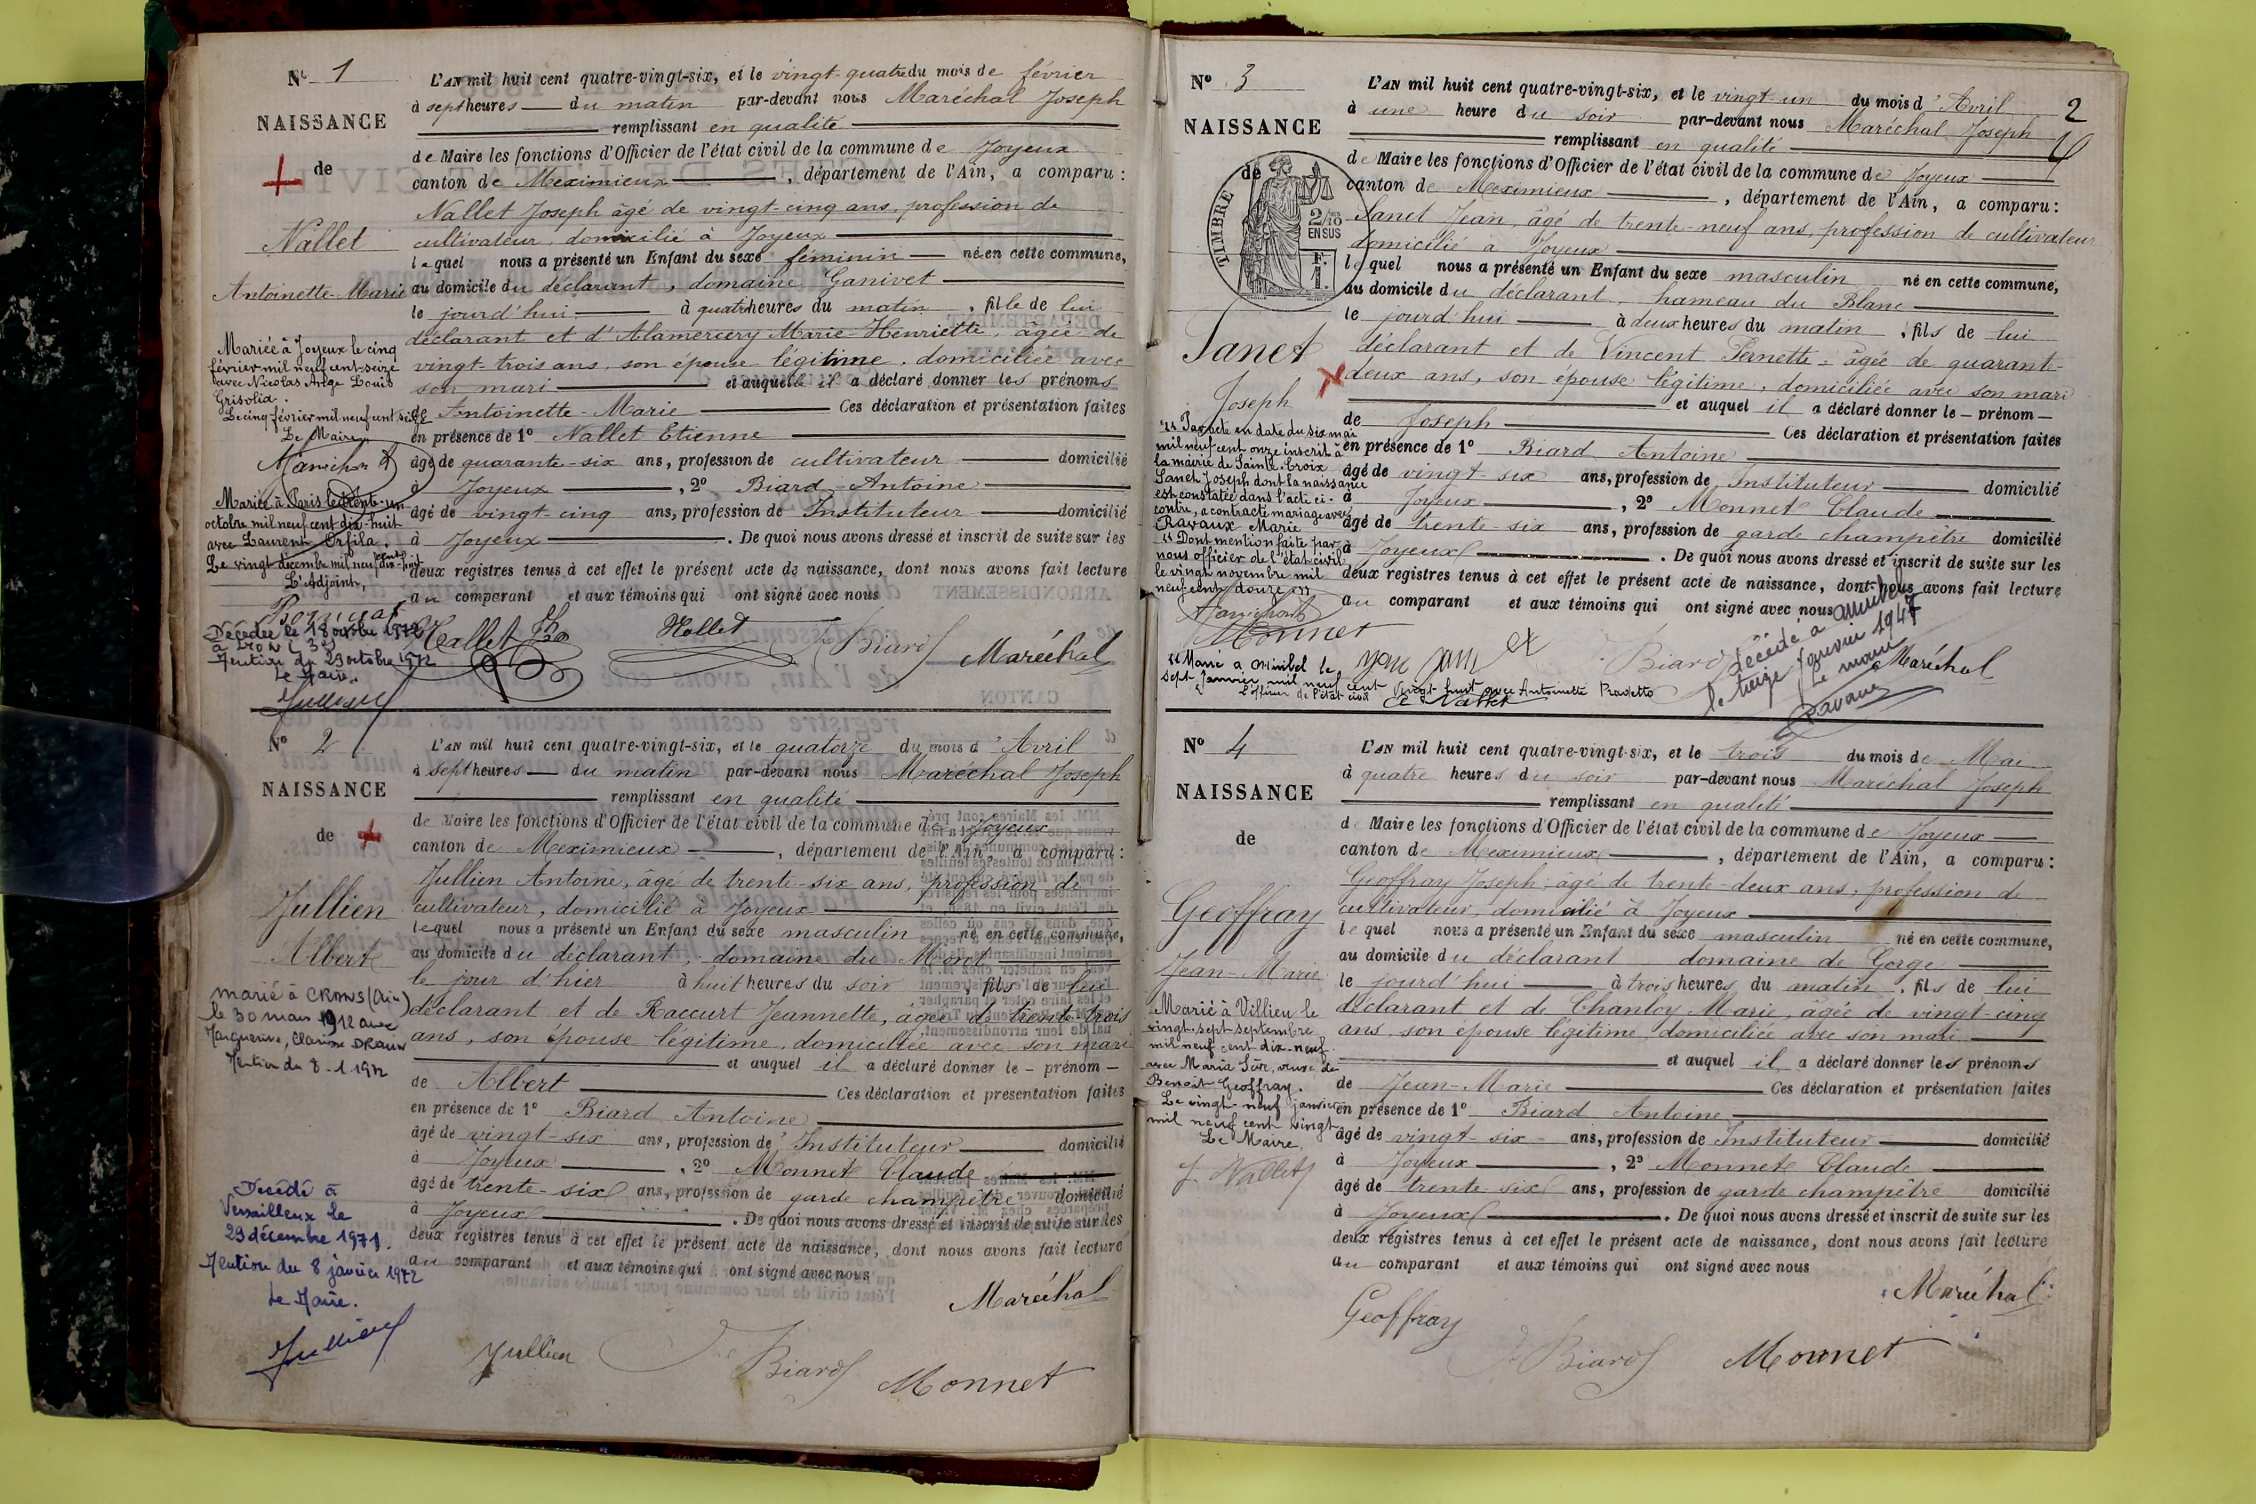 N° 1
NAISSANCE
de
Nallet
Antoinette-Marie
Mariée à Joyeux le cinq
février mil neuf cent seize
avec Nicolas Ange Louis
Grisolia.
Le cinq février mil neuf cent seize
Le Maire,
Manichon
Mariée à Paris le trente-un
octobre mil neuf cent dix-huit
avec Laurent Orfila.
Le vingt décembre mil neuf cent dix-huit
L'Adjoint,
Décédée le 18 octobre 1972
à Lyon (3e)
Mention du 23 octobre 1972
Le Maire.
Jullien
L'AN mil huit cent quatre-vingt-six, et le vingt-quatre du mois de février
à sept heures du matin par-devant nous Maréchal Joseph
remplissant en qualité
de Maire les fonctions d'Officier de l'état civil de la commune de Joyeux
canton de Meximieux, département de l'Ain, a comparu:
Nallet Joseph âgé de vingt-cinq ans, profession de
cultivateur, domicilié à Joyeux
lequel nous a présenté un Enfant du sexe féminin née en cette commune,
au domicile du déclarant, domaine Ganivet
le jourd'hui à quatre heures du matin, fille de lui
déclarant et d'Alamercery Marie-Henriette, âgée de
vingt-trois ans, son épouse légitime, domiciliée avec
son mari et auquel il a déclaré donner les prénoms
de Antoinette-Marie Ces déclaration et présentation faites
en présence de 1° Nallet Etienne
âgé de quarante-six ans, profession de cultivateur domicilié
à Joyeux, 2° Biard Antoine
âgé de vingt-cinq ans, profession de Instituteur domicilié
à Joyeux. De quoi nous avons dressé et inscrit de suite sur les
deux registres tenus à cet effet le présent acte de naissance, dont nous avons fait lecture
au comparant et aux témoins qui ont signé avec nous
Nallet Nallet Biard Maréchal
N° 2
NAISSANCE
de
Jullien
Albert
marié à CRANS (Ain)
le 30 mars 1912 avec
Mention du 8-1 1972
Décédé à
Versailleux le
29 décembre 1971.
Mention du 8 janvier 1972
Le Maire.
Jullien
L'AN mil huit cent quatre-vingt-six, et le quatorze du mois d'Avril
à sept heures du matin par-devant nous Maréchal Joseph
remplissant en qualité
de Maire les fonctions d'Officier de l'état civil de la commune de Joyeux
canton de Meximieux, département de l'Ain, a comparu:
Jullien Antoine, âgé de trente-six ans, profession de
cultivateur, domicilié à Joyeux
lequel nous a présenté un Enfant du sexe masculin né en cette commune,
au domicile du déclarant, domaine du
le jour d'hier à huit heures du soir, fils de lui
déclarant et de Raccurt Jeannette, âgée de trente-trois
ans, son épouse légitime, domiciliée avec son mari
et auquel il a déclaré donner le - prénom -
de Albert Ces déclaration et présentation faites
en présence de 1° Biard Antoine
âgé de vingt-six ans, profession de Instituteur domicilié
à Joyeux, 2° Monnet Claude
âgé de trente-six ans, profession de garde champêtre domicilié
à Joyeux. De quoi nous avons dressé et inscrit de suite sur les
deux registres tenus à cet effet le présent acte de naissance, dont nous avons fait lecture
au comparant et aux témoins qui ont signé avec nous
Maréchal
Jullien Biard Monnet
2
N° 3
NAISSANCE
de
TIMBRE
2/10
EN SUS
F.
1.
Janet
Joseph
"Par acte en date du six mai
mil neuf cent onze inscrit à
la mairie de Sainte-Croix
Janet Joseph dont la naissance
est constatée dans l'acte ci-
contre, a contracté mariage avec
Ravaux Marie
"Dont mention faite par
nous officier de l'état civil
le vingt novembre mil
neuf cent douze.
Manichon
"Marié à Miribel le
sept janvier mil neuf cent vingt huit avec Antoinette
L'officier de l'état civil
Nallet
L'AN mil huit cent quatre-vingt-six, et le vingt-un du mois d'Avril
à une heure du soir par-devant nous Maréchal Joseph
remplissant en qualité
de Maire les fonctions d'Officier de l'état civil de la commune de Joyeux
canton de Meximieux, département de l'Ain, a comparu:
Janet Jean, âgé de trente-neuf ans, profession de cultivateur
domicilié à Joyeux
lequel nous a présenté un Enfant du sexe masculin né en cette commune,
au domicile du déclarant, hameau du Blanc
le jourd'hui à deux heures du matin, fils de lui
déclarant et de Vincent Pernette, âgée de quarante-
deux ans, son épouse légitime, domiciliée avec son mari
et auquel il a déclaré donner le - prénom -
de Joseph Ces déclaration et présentation faites
en présence de 1° Biard Antoine
âgé de vingt-six ans, profession de Instituteur domicilié
à Joyeux, 2° Monnet Claude
âgé de trente-six ans, profession de garde champêtre domicilié
à Joyeux. De quoi nous avons dressé et inscrit de suite sur les
deux registres tenus à cet effet le présent acte de naissance, dont nous avons fait lecture
au comparant et aux témoins qui ont signé avec nous
Monnet Biard Maréchal
Décédé à
le treize janvier 1947
Le maire
N° 4
NAISSANCE
de
Geoffray
Jean-Marie
Marié à Villieu le
vingt-sept septembre
mil neuf cent dix-neuf
avec Maria , veuve de
Benoît Geoffray.
Le vingt-neuf janvier
mil neuf cent vingt
Le Maire
J. Nallet
L'AN mil huit cent quatre-vingt-six, et le trois du mois de Mai
à quatre heures du soir par-devant nous Maréchal Joseph
remplissant en qualité
de Maire les fonctions d'Officier de l'état civil de la commune de Joyeux
canton de Meximieux, département de l'Ain, a comparu:
Geoffray Joseph, âgé de trente-deux ans, profession de
cultivateur, domicilié à Joyeux
lequel nous a présenté un Enfant du sexe masculin né en cette commune,
au domicile du déclarant domaine de Gorge
le jourd'hui à trois heures du matin, fils de lui
déclarant et de Chanloy Marie, âgée de vingt-cinq
ans, son épouse légitime domiciliée avec son mari
et auquel il a déclaré donner les prénoms
de Jean-Marie Ces déclaration et présentation faites
en présence de 1° Biard Antoine
âgé de vingt-six ans, profession de Instituteur domicilié
à Joyeux, 2° Monnet Claude
âgé de trente-six ans, profession de garde champêtre domicilié
à Joyeux. De quoi nous avons dressé et inscrit de suite sur les
deux registres tenus à cet effet le présent acte de naissance, dont nous avons fait lecture
au comparant et aux témoins qui ont signé avec nous
Maréchal
Geoffray Biard Monnet